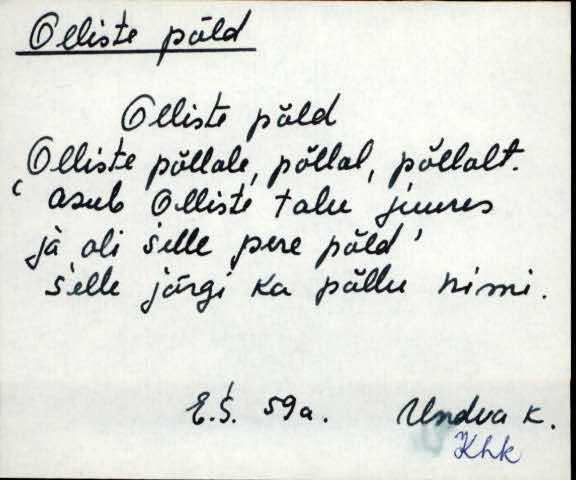 Olliste põld
Olliste põld
Olliste põllale, põllal, põllalt.
‘ asub Olliste talu juures
ja oli śelle pere põld’
śelle järgi ka põllu nimi.
E.Ś. 59a. Undva k.
Khk